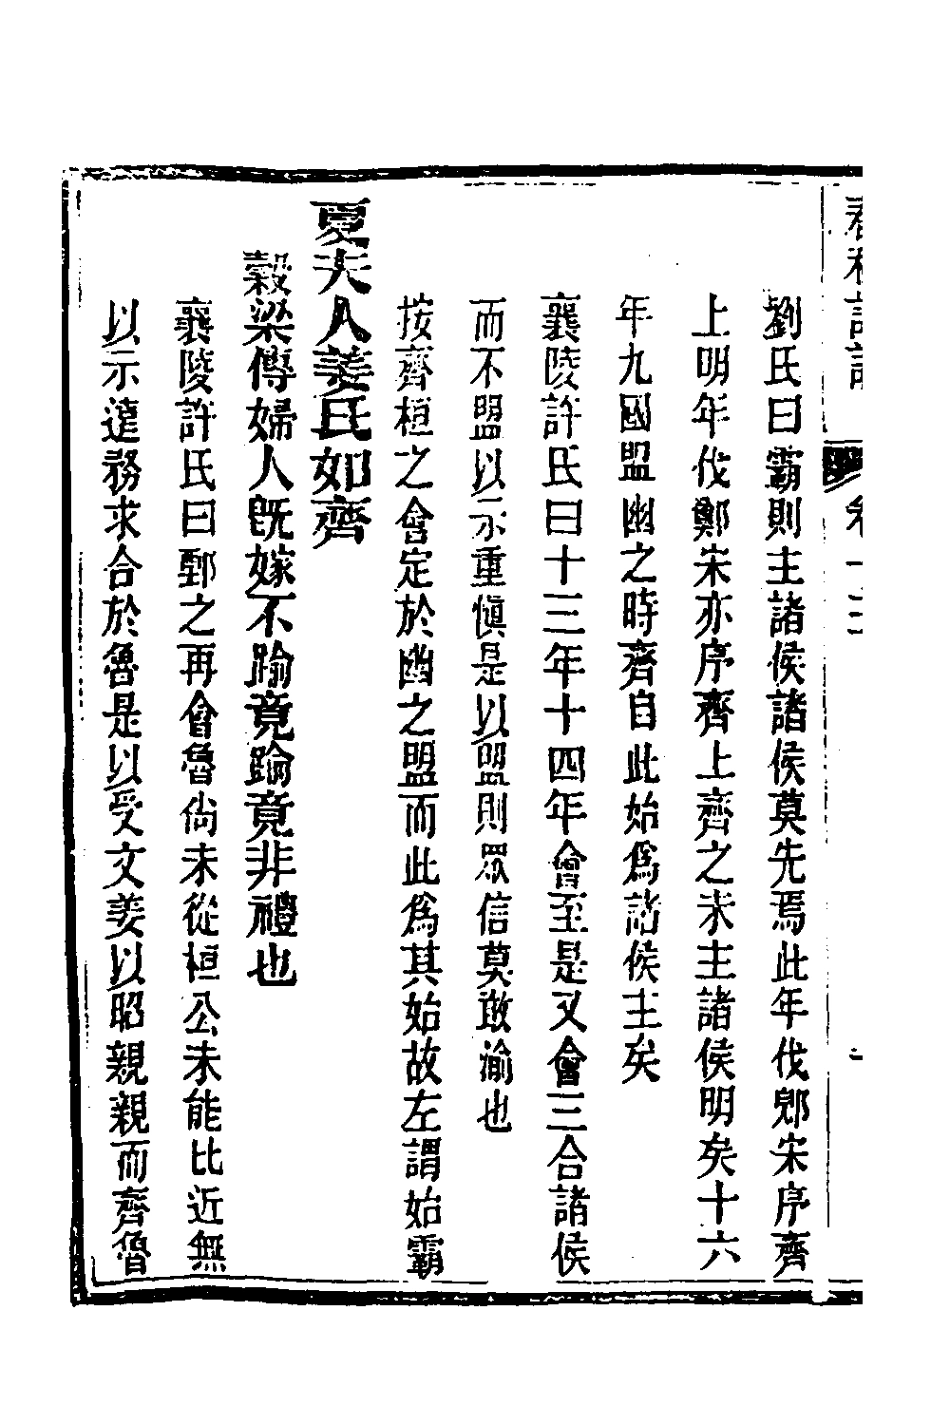 劉氏曰霸則主諸侯諸侯莫先焉此年伐郳宋序齊
上明年伐鄭宋亦序齊上齊之未主諸侯明矣十六
年九國盟幽之時齊自此始爲諸侯主矣
襄陵許氏曰十三年十四年會至是又會三合諸侯
而不盟以示重愼是以盟則眾信莫敢渝也
按齊桓之會定於幽之盟而此爲其始故左謂始霸
夏夫人姜氏如齊
穀梁傳婦人旣嫁不踰竟踰竟非禮也
襄陵許氏曰鄄之再會魯尙未從桓公未能比近無
以示遠務求合於魯是以受文姜以昭親親而齊魯